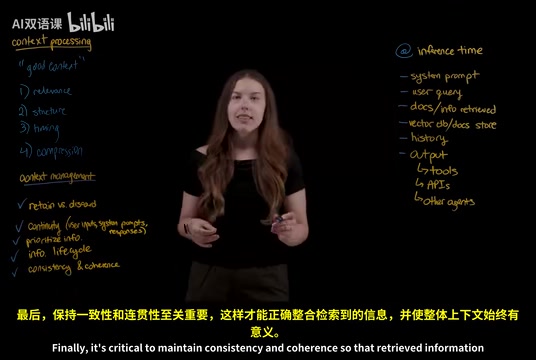 AI双语课 bilibili
context processing
"good context"
1) relevance
2) structure
3) timing
4) compression
context management
✓ retain vs. discard
✓ continuity (user inputs, system prompts, responses)
✓ prioritize info.
✓ info. lifecycle
✓ consistency & coherence
@ inference time
- system prompt
- user query
- docs/info retrieved
- vector db/docs store
- history
- output
↳ tools
↳ APIs
↳ other agents
最后，保持一致性和连贯性至关重要，这样才能正确整合检索到的信息，并使整体上下文始终有
意义。
Finally, it's critical to maintain consistency and coherence so that retrieved information